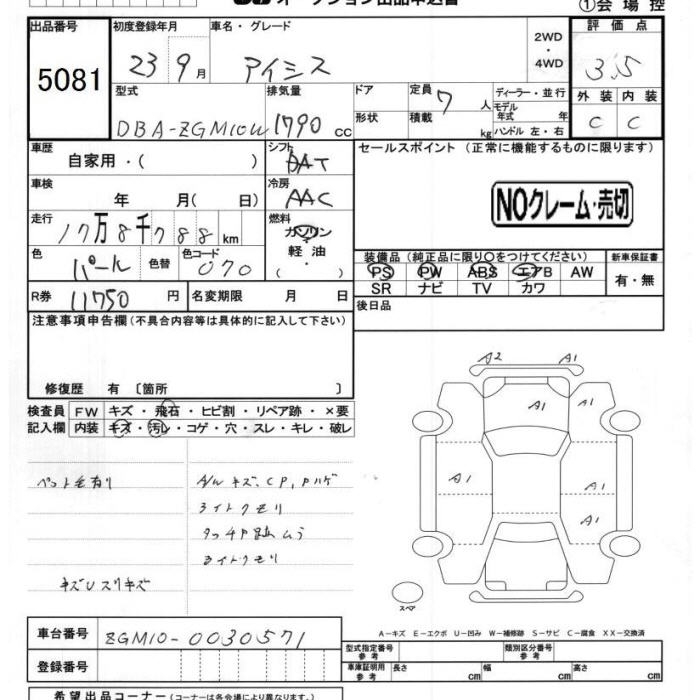 オークション出品申込書
①会場控
出品番号
5081
初度登録年月
23 9月
車名・グレード
アイシス
2WD
・
4WD
評価点
3.5
型式
DBA-ZGM10W
排気量
1790 cc
ドア
形状
定員
7人
積載
kg
ディーラー・並行
モデル年式 年
ハンドル 左・右
外装
C
内装
C
車歴
自家用・( )
シフト
DAT
セールスポイント (正常に機能するものに限ります)
車検
年 月( 日)
冷房
AAC
NOクレーム・売切
走行
17万8千788km
燃料
ガソリン
軽油・
( )
色
パール
色替
色コード
070
装備品(純正品に限り○をつけてください)
PS PW ABS エアB AW
SR ナビ TV カワ
新車保証書
有・無
R券
11750円
名変期限 月 日
後日品
注意事項申告欄(不具合内容等は具体的に記入して下さい)
修復歴 有〔箇所 〕
検査員
記入欄
FW キズ・飛石・ヒビ割・リペア跡・×要
内装 キズ・汚レ・コゲ・穴・スレ・キレ・破レ
ペット毛有り
A/W キズ、CP、Pハゲ
ライトクモリ
タッチP跡ムラ
ライトクモリ
キズUスリキズ
A2 A1
A1 A1
A1 A1
A1
スペア
A-キズ E-エクボ U-凹み W-補修跡 S-サビ C-腐食 XX-交換済
車台番号
ZGM10-0030571
登録番号
型式指定番号
参考
類別区分番号
参考
車庫証明用
参考
長さ cm
幅 cm
高さ cm
希望出品コーナー(コーナーは各会場により異なります)